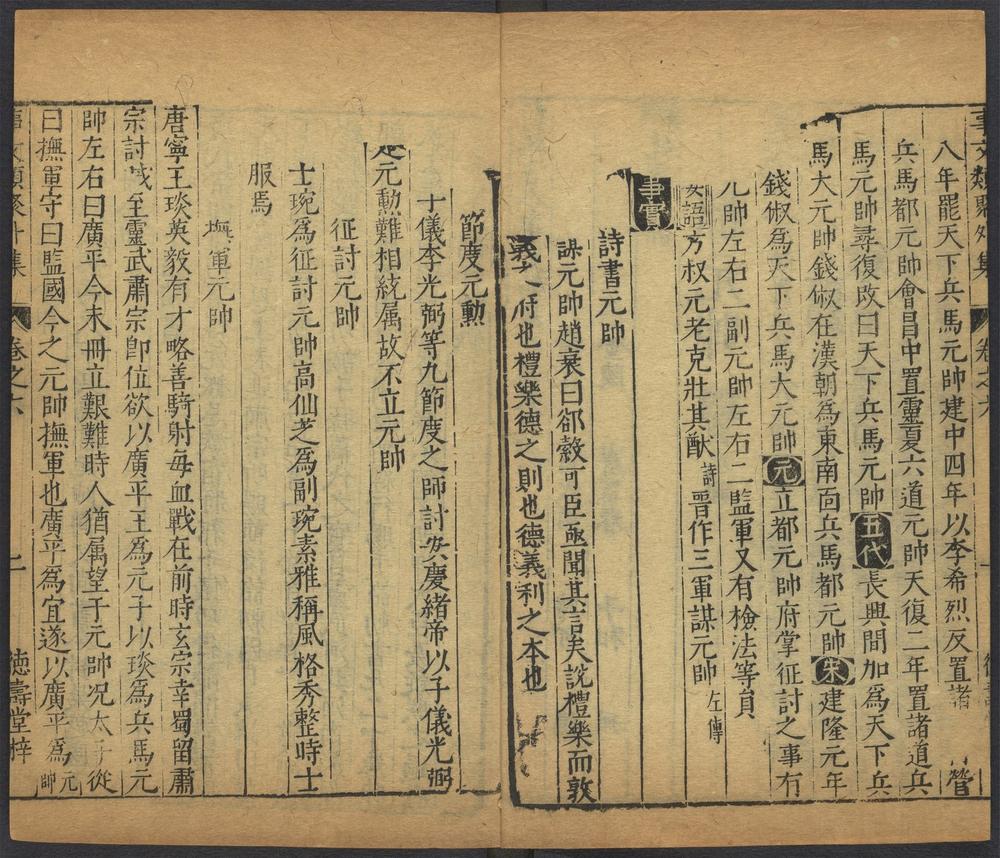 事文類聚外集 卷之六
八年罷天下兵馬元帥建中四年以李希烈反置諸 營
兵馬都元帥會昌中置靈夏六道元帥天復二年置諸道兵
馬元帥尋復改曰天下兵馬元帥五代長興間加爲天下兵
馬大元帥錢俶在漢朝爲東南面兵馬都元帥宋建隆元年
錢俶爲天下兵馬大元帥元立都元帥府掌征討之事有
元帥左右二副元帥左右二監軍又有檢法等員
要語方叔元老克壯其猷詩晉作三軍謀元帥左傳
事實
詩書元帥
謀元帥趙衰曰郤縠可臣亟聞其言矣說禮樂而敦
義 府也禮樂德之則也德義利之本也
節度元勲
子儀李光弼等九節度之師討安慶緒帝以子儀光弼
是元勲難相統属故不立元帥
征討元帥
士琬爲征討元帥高仙芝爲副琬素雅稱風格秀整時士
服焉
撫軍元帥
唐寧王琰英毅有才略善騎射每血戰在前時玄宗幸蜀留肅
宗討賊至靈武肅宗卽位欲以廣平王爲元子以琰爲兵馬元
帥左右曰廣平今未冊立艱難時人猶属望于元帥况太子從
曰撫軍守曰監國今之元帥撫軍也廣平爲宜遂以廣平爲元帥
事文類聚外集 卷之六 二 德壽堂梓